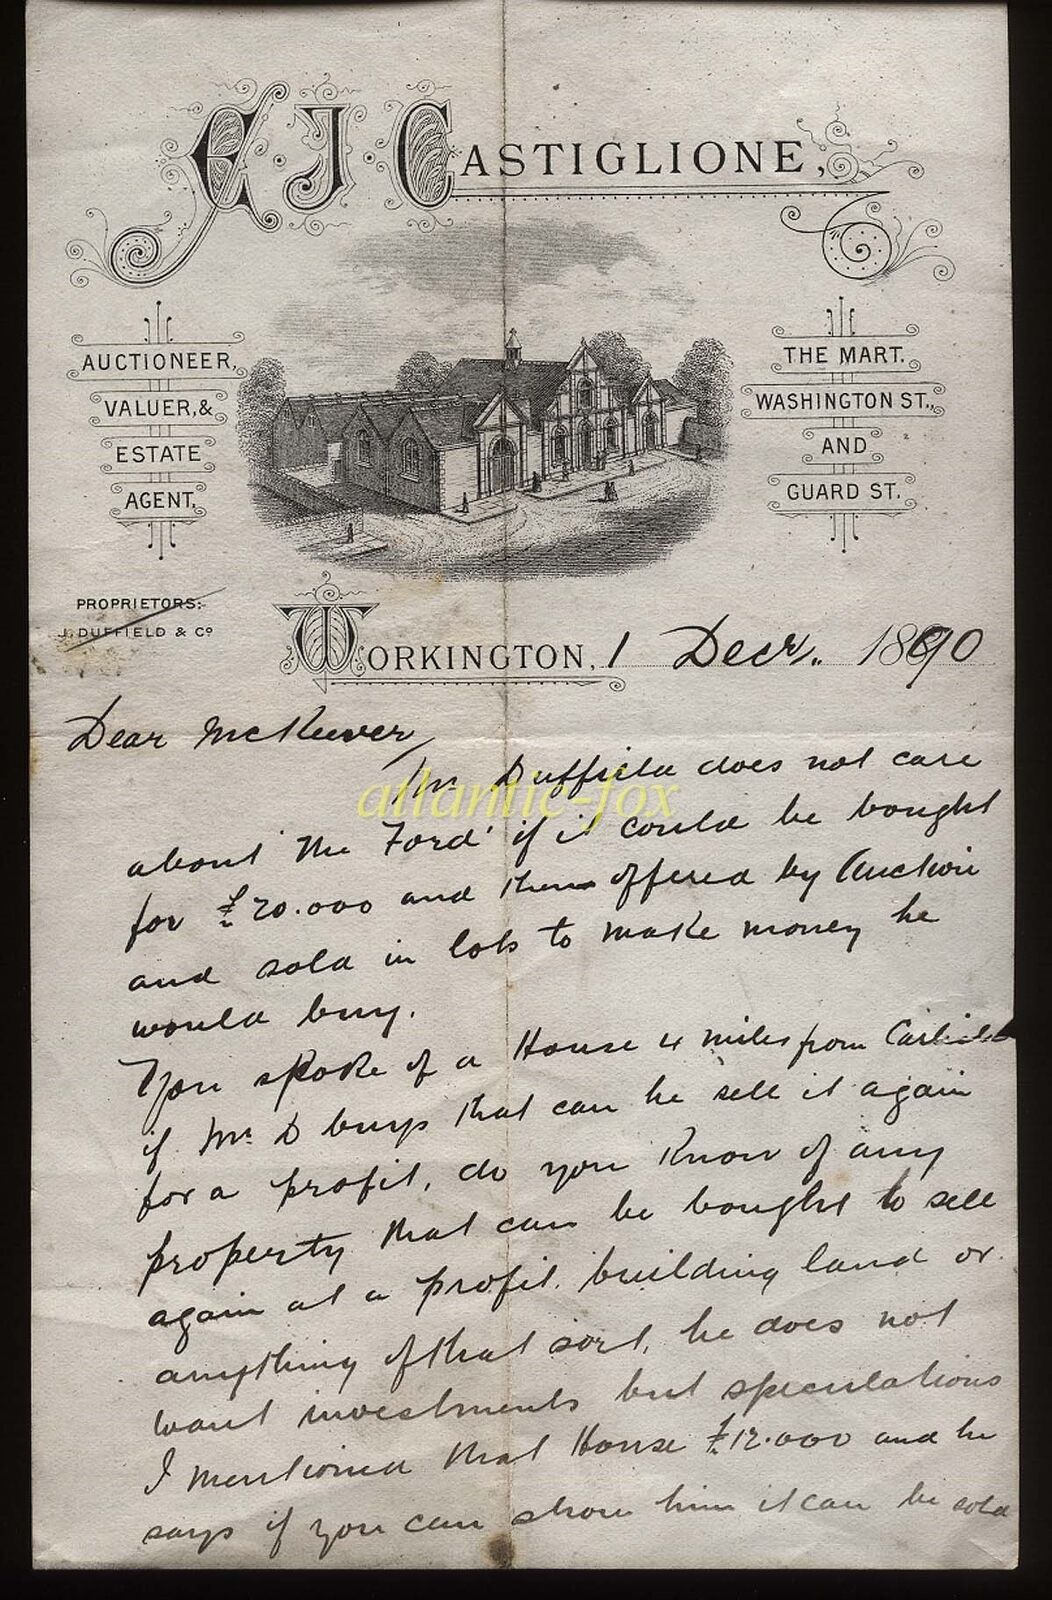 E. J. CASTIGLIONE,
AUCTIONEER,
VALUER, &
ESTATE
AGENT,
THE MART.
WASHINGTON ST.,
AND
GUARD ST.
PROPRIETORS:-
J. DUFFIELD & Co
WORKINGTON, 1 Decr. 1890
Dear McKeever,
Mr Duffield does not care
about 'The Ford' if it could be bought
for £20.000 and then offered by Auction
and sold in lots to make money he
would buy.
You spoke of a House 4 miles from Carlisle
if Mr D buys that can he sell it again
for a profit, do you know of any
property that can be bought to sell
again at a profit, building land or
anything of that sort, he does not
want investments but speculations
I mentioned that House £12.000 and he
says if you can show him it can be sold
atlantic-fox